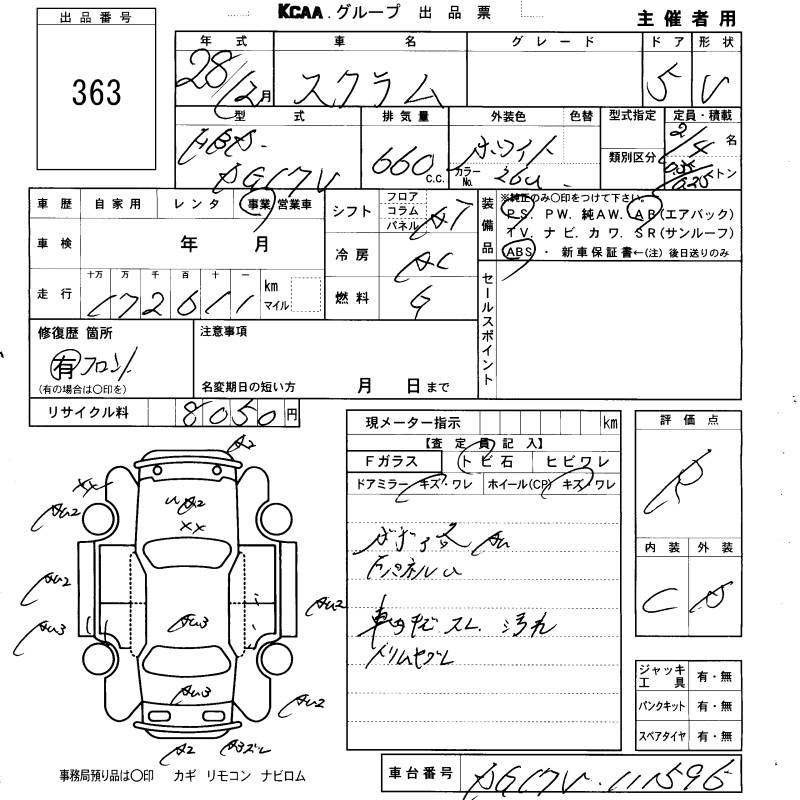 KCAA グループ 出品票
主催者用
出品番号
363
年式 車名 グレード ドア 形状
28/12月 スクラム 5 V
型式 排気量 外装色 色替 型式指定 定員・積載
HBD-DG17V 660c.c. ホワイト カラーNo. 26U 類別区分 2/4名 トン
車歴 自家用 レンタ 事業 営業車
シフト フロア コラム パネル AT
装備品 ※純正のみ○印をつけて下さい。
PS. PW. 純AW. AB(エアバック)
TV. ナビ. カワ. SR(サンルーフ)
ABS ・ 新車保証書←(注)後日送りのみ
車検 年 月
冷房 AC
走行 十万 万 千 百 十 一
172611 km マイル
燃料 G
セールスポイント
修復歴 箇所
有 フロント
(有の場合は○印を)
注意事項
名変期日の短い方 月 日まで
リサイクル料 8050円
現メーター指示 km
【査定員記入】
Fガラス トビ石 ヒビワレ
ドアミラー キズ・ワレ ホイール(CP) キズ・ワレ
評価点
R
内装 外装
C D
A2
XX
AU2
U A2
XX
AU2
AU3
AU3
AU2
AU3
AU2
A2
A3ズレ
ボディ各 AU
FパネルU
車内キズ スレ 汚れ
トリムヤブレ
ジャッキ工具 有・無
パンクキット 有・無
スペアタイヤ 有・無
事務局預り品は○印 カギ リモコン ナビロム
車台番号 DG17V-111596